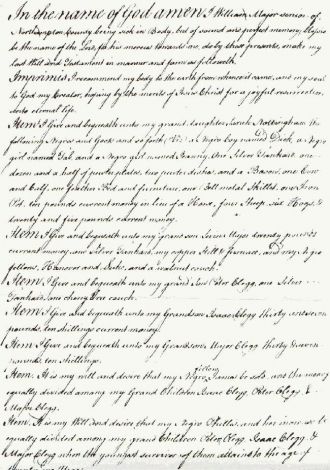 In the name of God amen I William Major senior of
Northampton County being sick in Body, but of sound and perfect memory, Praise
be the name of the Lord, for his mercies towards me, do by these presents, make my
last Will and Testament in manner and form as followeth.
Imprimis I recommend my body to the earth from whence it came, and my soul
to God my Creator, hoping by the merits of Jesus Christ for a joyful resurrection,
unto eternal life.
Item I Give and bequeath unto my grand daughter Sarah Nottingham the
following Negros and Goods as forth, Viz: a Negro boy named Dick, a Negro
girl named Tab, and a Negro girl named Fanny, One Silver Tankard, one
dozen and a half of pewter plates, two pewter dishes, and a Bason, one Cow
and Calf, one feather Bed and furniture, one bell metal Skillet, one Iron
Pot, ten pounds current money in lieu of a Horse, four Sheep, six Hogs, &
twenty and five pounds current money.
Item I Give and bequeath unto my grand son twenty pounds
current money, one Silver Tankard, my copper Still & furnace, and my Negro
fellows, Hanover and and a walnut couch.
Item I Give and bequeath unto my grand son Peter Clegg, one Silver
Tankard, one cherry Tree couch.
Item I Give and bequeath unto my Grandson Isaac Clegg thirty seven
pounds, ten shillings current money.
Item I Give and bequeath unto my Grandson Major Clegg thirty seven
pounds, ten shillings.
Item. It is my will and desire that my Negro be sold, and the money
equally divided among my Grand Children Isaac Clegg, Peter Clegg &
Major Clegg.
Item. It is my Will and desire that my Negro Phillis, and her increase be
equally divided among my grand Children Peter Clegg, Isaac Clegg, &
Major Clegg when the youngest survivor of them attains to the age of